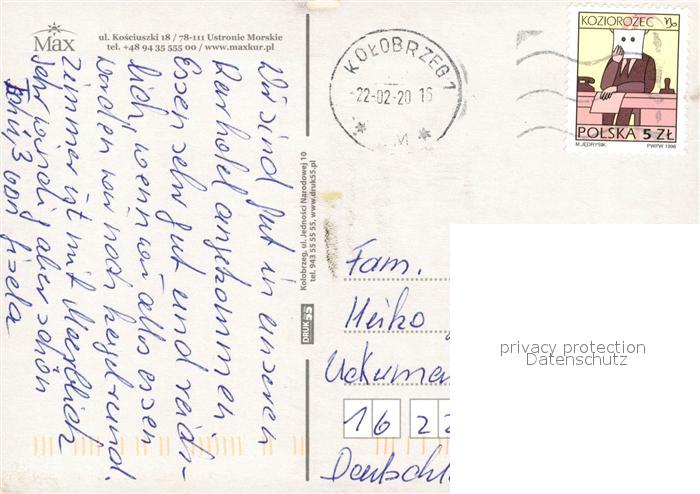 Max
ul. Kościuszki 18 / 78-111 Ustronie Morskie
tel. +48 94 35 555 00 / www.maxkur.pl
Wir sind gut in unseren
Kurhotel angekommen
Essen sehr gut und reich-
lich, wenn wir alles essen
werden wir noch kugelrund.
Zimmer ist mit Meerblich
sehr windig aber schön
Tschüß von Gisela
Kołobrzeg, ul. Jedności Narodowej 10
tel. 943 55 55 55, www.druk55.pl
DRUK 55
KOŁOBRZEG 1
22-02-20 16
M
KOZIOROŻEC
POLSKA 5 ZŁ
M.JĘDRYSIK PWPW 1996
Fam.
Heiko
Uckerman
1 6 2 2
Deutschl
privacy protection
Datenschutz